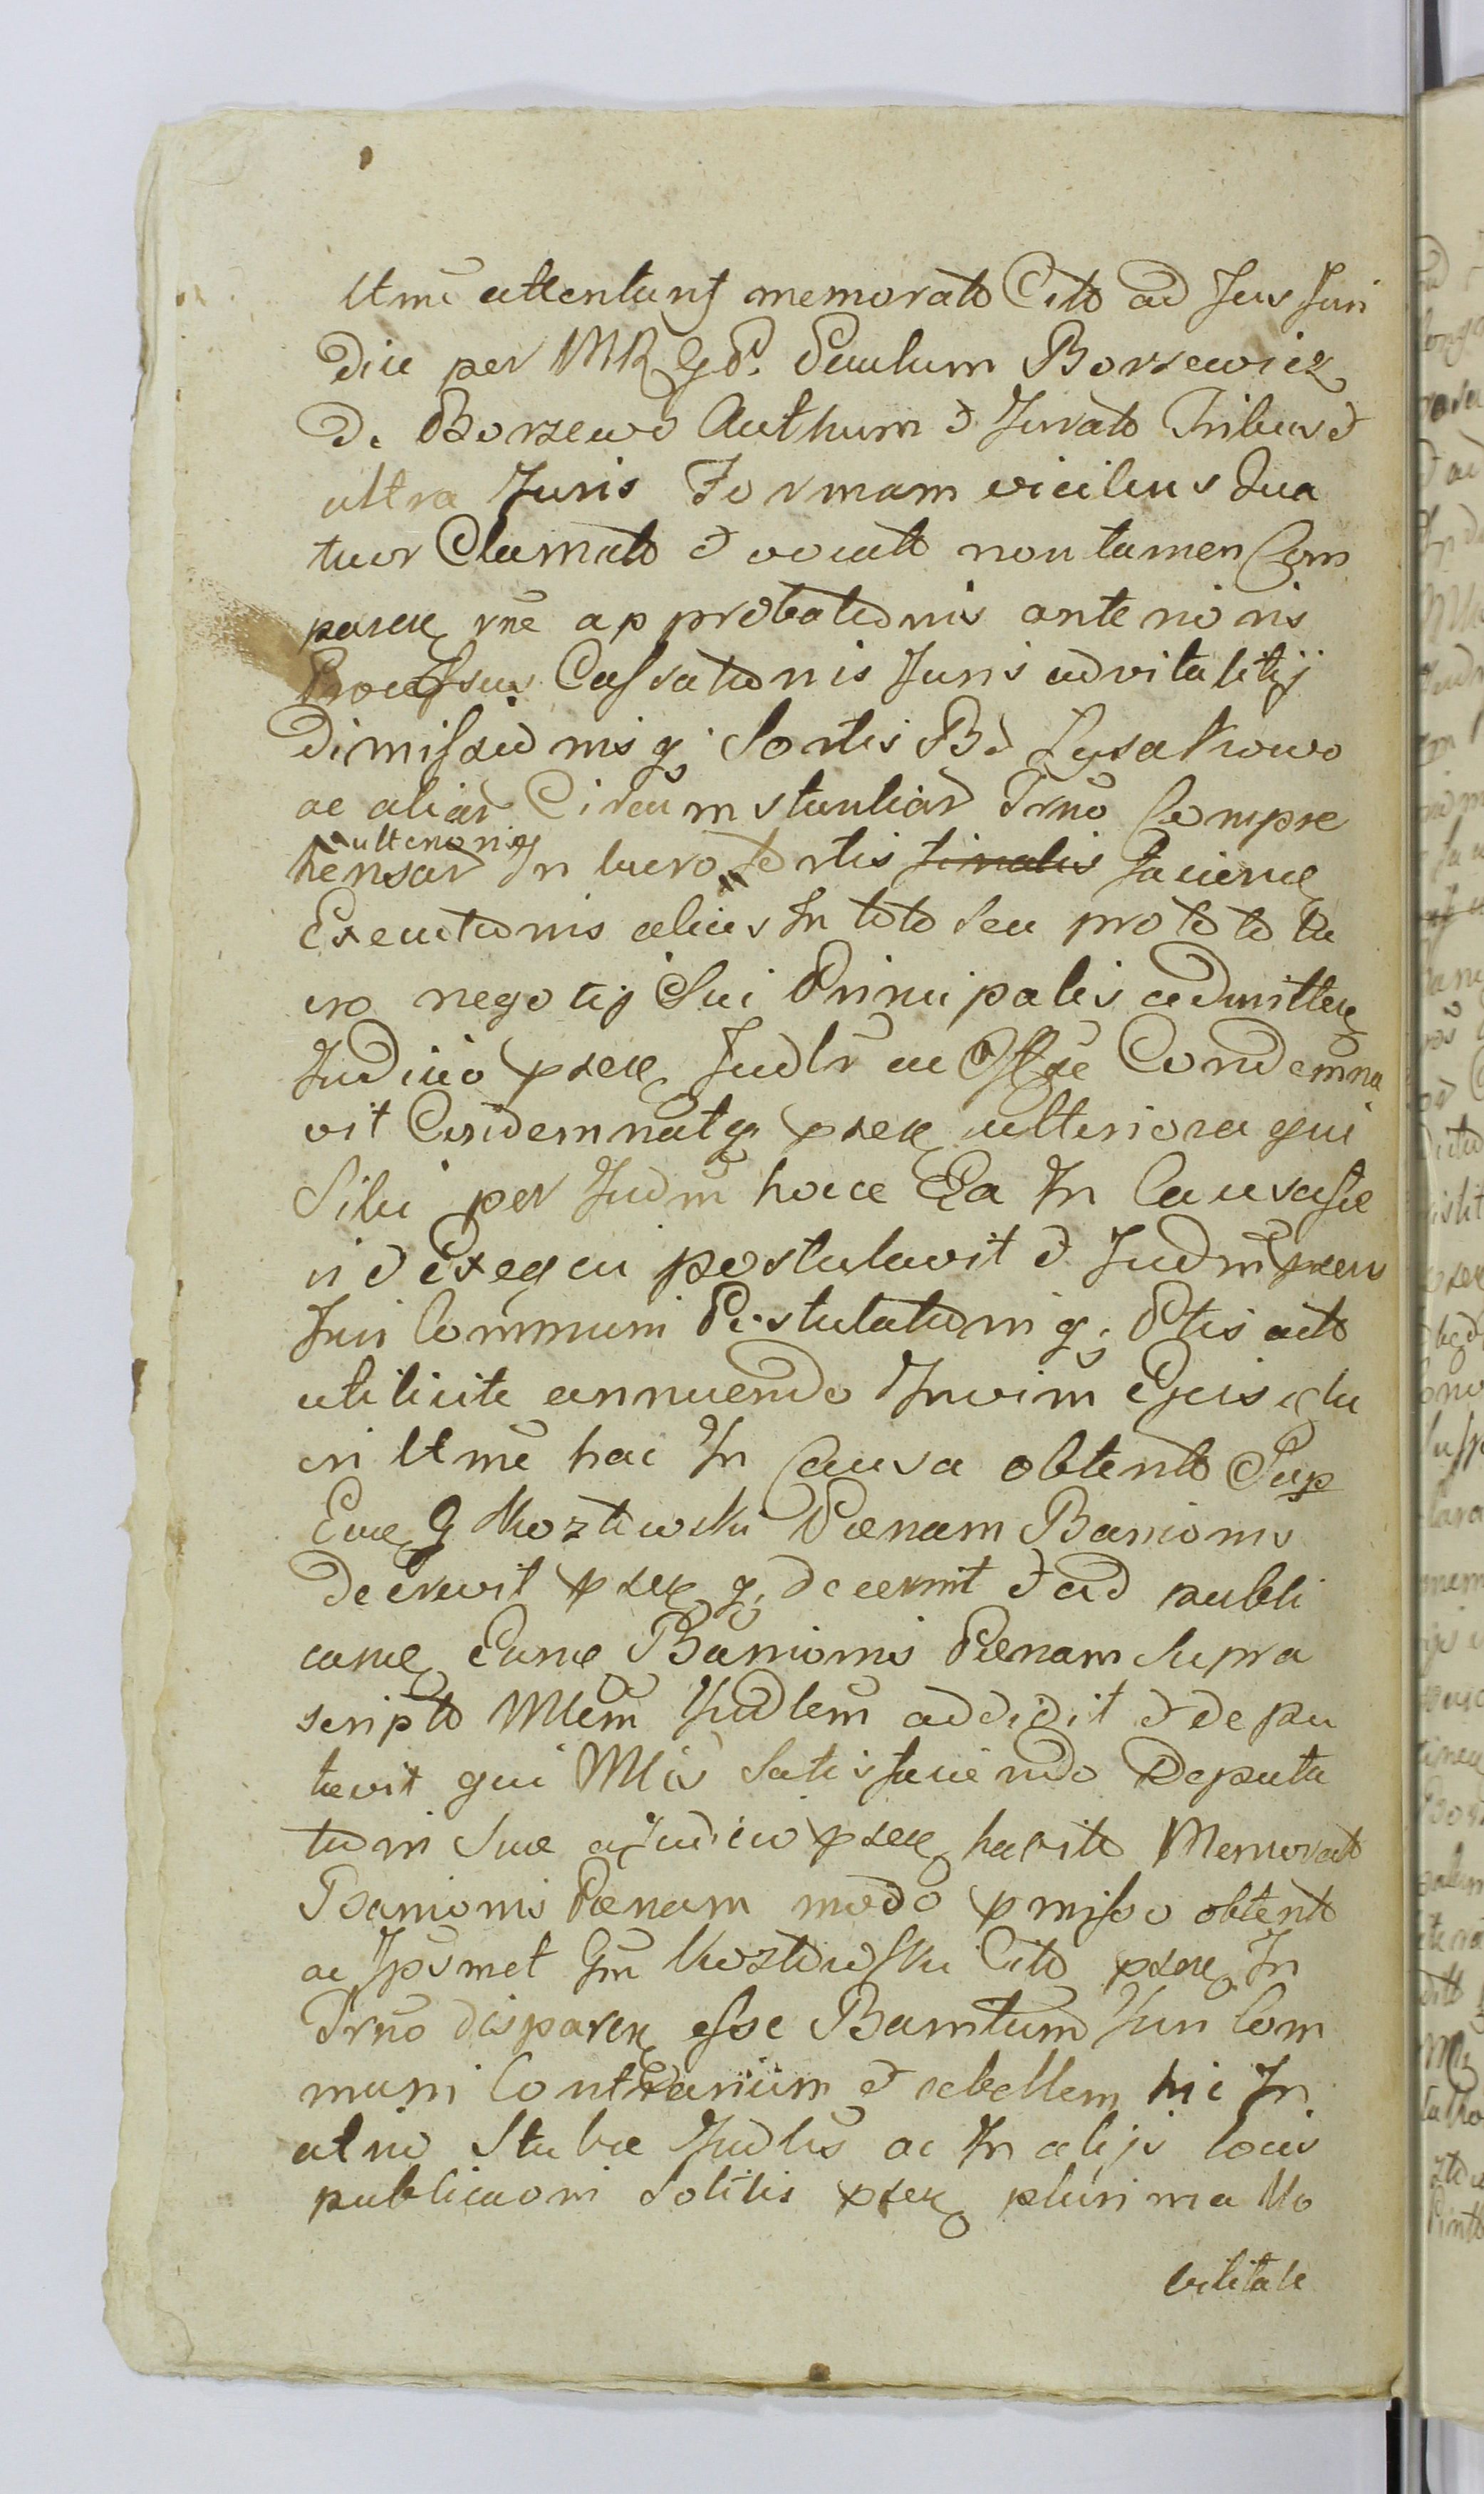 Ltme attentans memorato Cito ad Jus Juri
dice per MR GD. Paulum Borzewicz
de Borzewo Authum & Jurato Tribus &
ultra Juris Formam vicibus Qua
tuor Clamato & vocato non tamen Com
paren rne approbationis anterioris
Processus Cassationis Juris advitalitij
Dimissionisq; Sortis Bd Lysakowo
ac aliar Circumstantiar Trno Compre
hensar In lucro ulterioris Sortis finalis facien
Executionis alias In toto seu pro toto lu
cro negotij Sui Principalis admitten
Judicio psen Judlr ac Offse Condemna
vit Condemnatq psen ulteriora qui
Sibi per Judm hocce Ea In Causa
ni & Exequi postulavit & Judm psens
Juri Communi Postulationiq; Ptis acto
uti licite annuendo Invim
in Ltme hac In Causa obtento Sup
Eue G Koztowski Paenam Banionis
decrevit psenq; decernit & ad publi
cane Eane Banionis Paenam supra
scripto Mlem Judlem addidit & depu
tavit qui Mlis satisfaciendo Deputa
tioni Suae a Judicio psen habito Memorat
Banionis Paenam modo pmisso obtent
ac Ipsmet Gm Koztowski Cito psen In
Trno disparen esse Banitum Juri Com
muni Contrarium & rebellem hic In
atrio Stubae Judlis ac In alijs locis
publicaoni solitis psen plurima No
bilitate